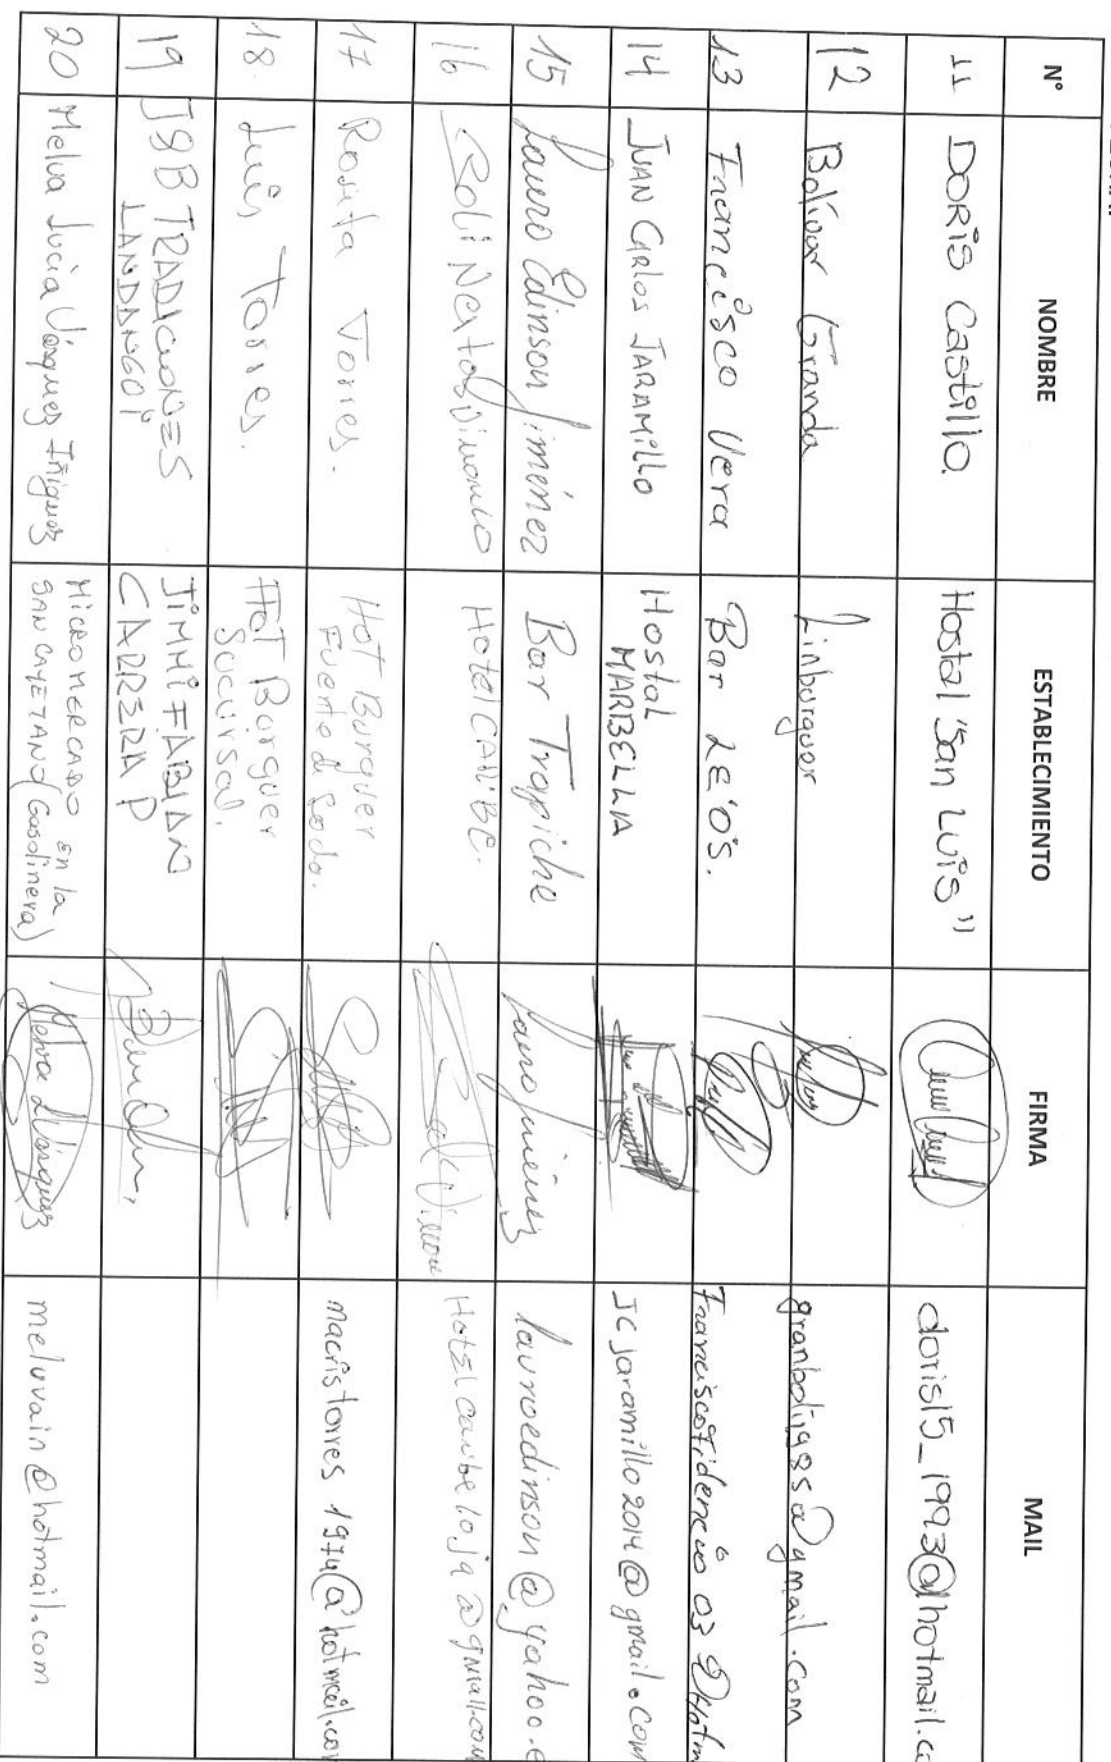 N° NOMBRE ESTABLECIMIENTO FIRMA MAIL
11 DORIS Castillo Hostal "San Luis" doris15_1993@hotmail.c
12 Bolívar Granda Linburguer @gmail.com
13 Francisco Vera Bar LEO'S. Franciscofidencio03@Hotm
14 JUAN CARLOS JARAMILLO Hostal
MARBELLA JCjaramillo2014@gmail.com
15 Lauro Edinson Jiménez Bar Trapiche Lauro Jiménez lauroedinson@yahoo.e
16 Hotel CARIBE. Hotelcaribeloja@gmail.com
17 Rosita Torres. Hot Burguer
Fuente de Soda. macristorres1974@hotmail.com
18. Luis Torres. Hot Burguer
Sucursal.
19 J&B TRADICIONES
LANDANGOI JIMMI FABIAN
CARRERA P
20 Melva Lucía Vásquez Iñiguez MICROMERCADO en la
SAN CAYETANO (Gasolinera) Melva Vásquez meluvain@hotmail.com